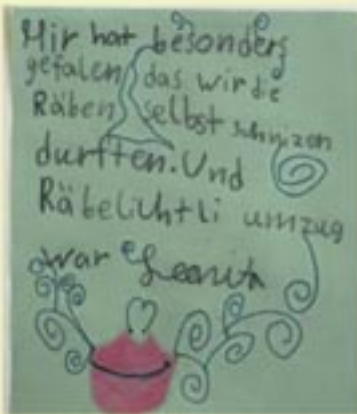 Mir hat besonders
gefalen das wir die
Räben selbst schnizen
durften. Und
Räbelichtli umzug
war